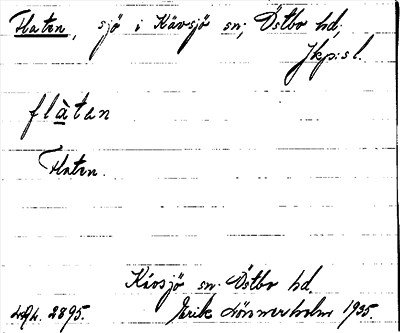 Flaten, sjö i Kävsjö sn; Östbo hd,
Jkp:s l.
flàtan
Flaten.
Kävsjö sn. Östbo hd.
2895. Erik Lönnerholm 1935.